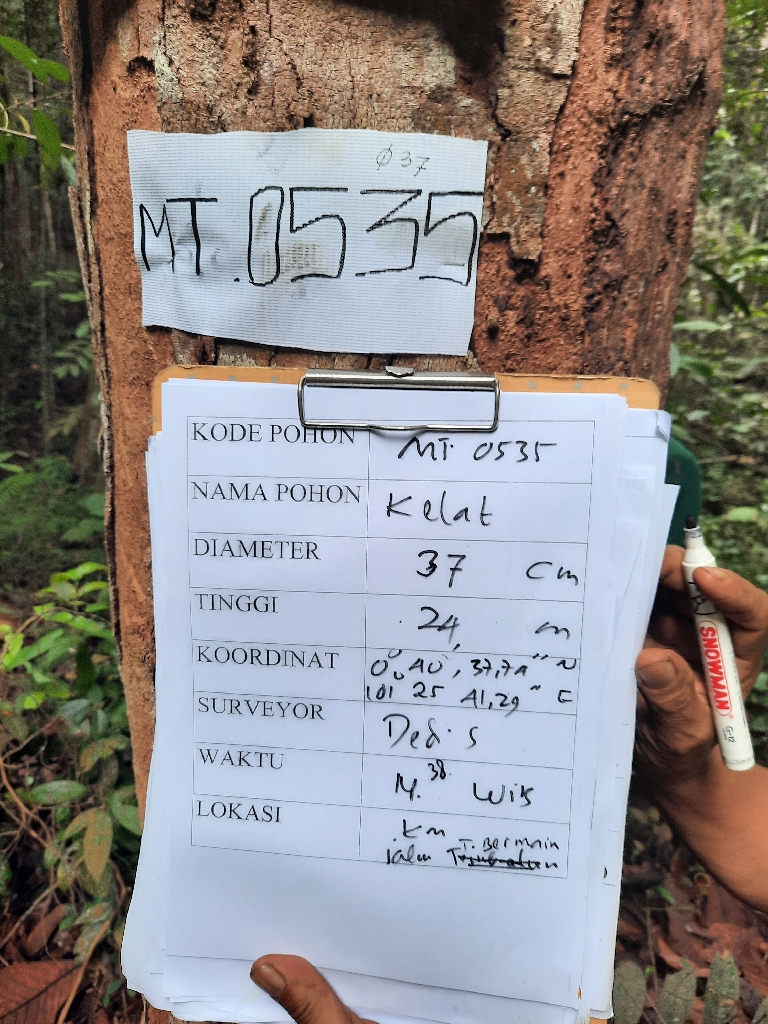 Ø 37
MT.0535
KODE POHON MT. 0535
NAMA POHON Kelat
DIAMETER 37 cm
TINGGI 24 m
KOORDINAT 0° 40', 37,74" N
101 25 41,29" E
SURVEYOR Dedi S
WAKTU 14.38 WIB
LOKASI Km
jalur T. Bermain
SNOWMAN
G-12